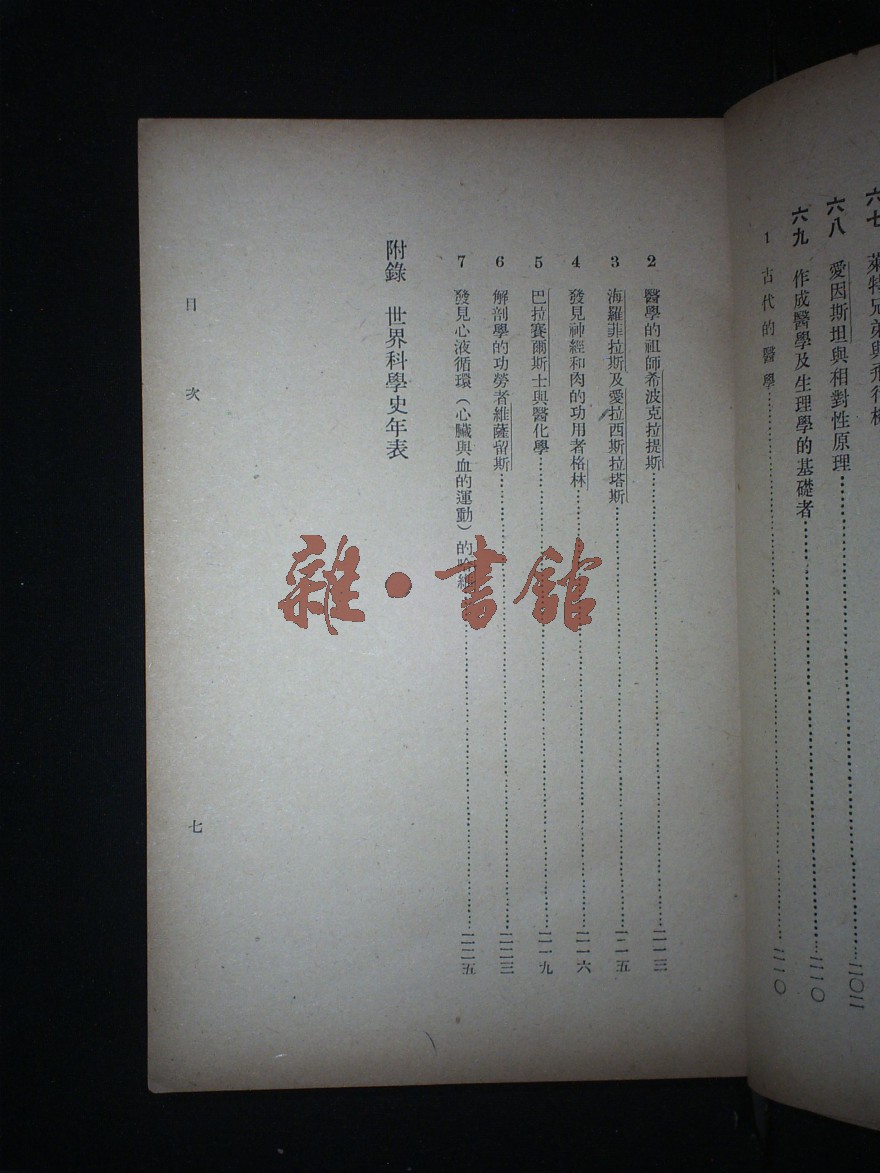 六七 萊特兄弟與飛行機
六八 愛因斯坦與相對性原理……二〇二
六九 作成醫學及生理學的基礎者……二一〇
1 古代的醫學……二一〇
2 醫學的祖師希波克拉提斯……二一三
3 海羅菲拉斯及愛拉西斯拉塔斯……二一五
4 發見神經和肉的功用者格林……二一六
5 巴拉賽爾斯士與醫化學……二一九
6 解剖學的功勞者維薩留斯……二二三
7 發見心液循環（心臟與血的運動）的……二二五
附錄 世界科學史年表
目次
七
雜·書館